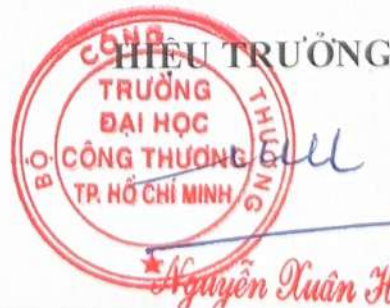 HIỆU TRƯỞNG
BỘ CÔNG THƯƠNG
TRƯỜNG
ĐẠI HỌC
CÔNG THƯƠNG
TP. HỒ CHÍ MINH
Nguyễn Xuân